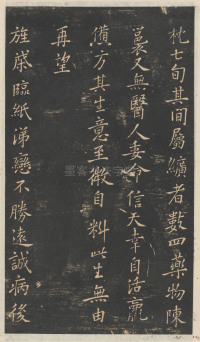 枕七旬其間屬纊者數四藥物陳
裏又無醫人委命信天幸自活羸
憊方其生意至微自料此生無由
再望
旌棨臨紙涕戀不勝遠誠病後